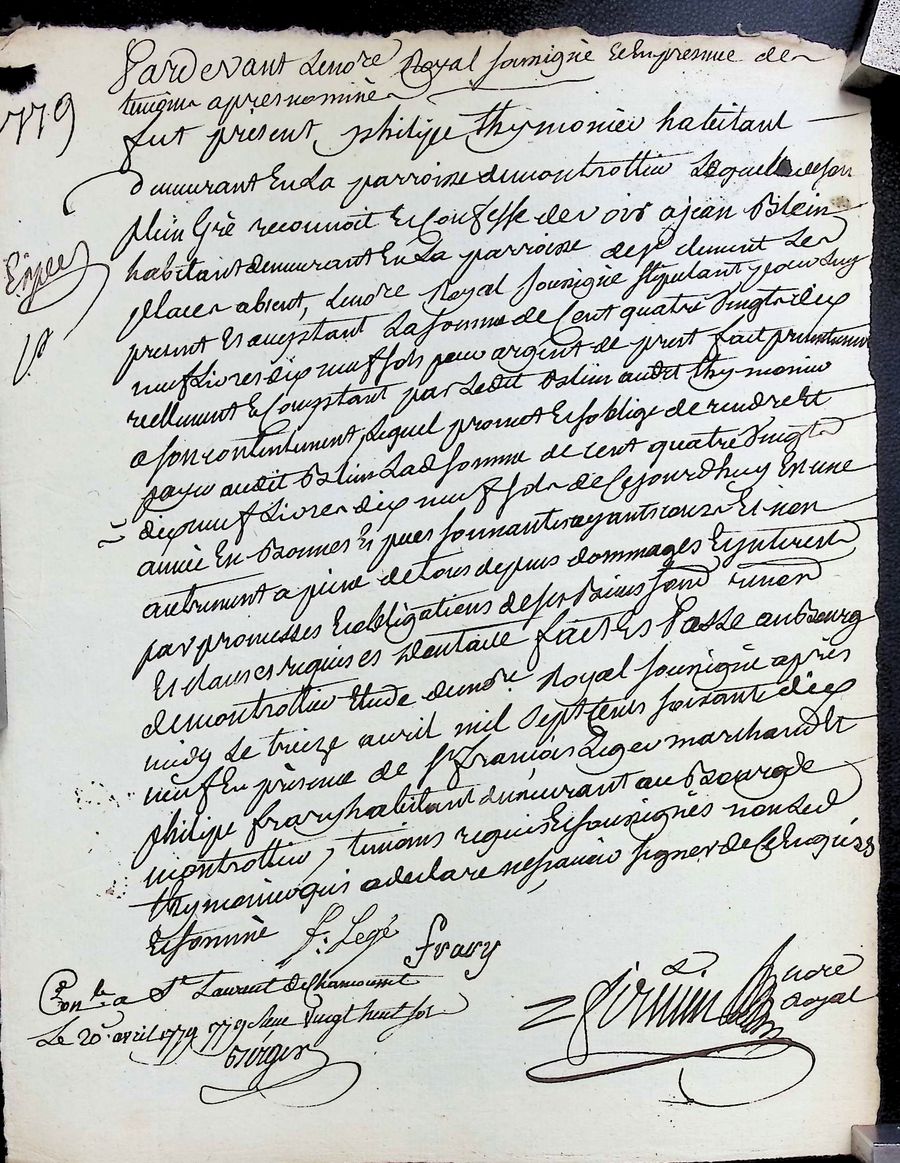 Pardevant Lenore Royal soussigné Et En presence de
temoins apres nommés
1779
fut present philipe thymonier habitant
demeurant En La parroisse de montrottier Lequel de son
plein Gré reconnoit Et Confesse devoir a jean Blein
habitant demeurant En La parroisse de st clement Les
Expee
places absent, Lenore Royal soussigné stipulant pour Luy
present Et acceptant La somme de Cent quatre vingt dix
neuf Livres dix neuf sols pour argent de prest fait presentement
reellement Et Comptant par Ledit Blein audit thymonier
a son contentement, Lequel promet Et soblige de rendre Et
payer audit Blein Lad somme de cent quatre vingt
dix neuf Livres dix neuf sols de Cejourdhuy En une
année En Bonnes Especes sonnantes ayants cours Et non
autrement a peine de tous depens dommages Et interests
par promesses Et obligations de ses Biens
Et clauses requises Dont acte fait Et Passé au Bourg
de montrottier Etude dunore Royal soussigné après
midy Le treize avril mil sept cents soixante dix
neuf En présence de sr françois Leger marchand Et
philipe frary habitant demeurant au Bourg de
montrottier, temoins requis Et soussignés non Led
thymonier qui a declaré ne sçavoir signer de Ce Enquis
Et sommé f: Legé frary
Conlé a St Laurent de Chamousset
Le 20 avril 1779 Reçu vingt huit sols
nore
Royal